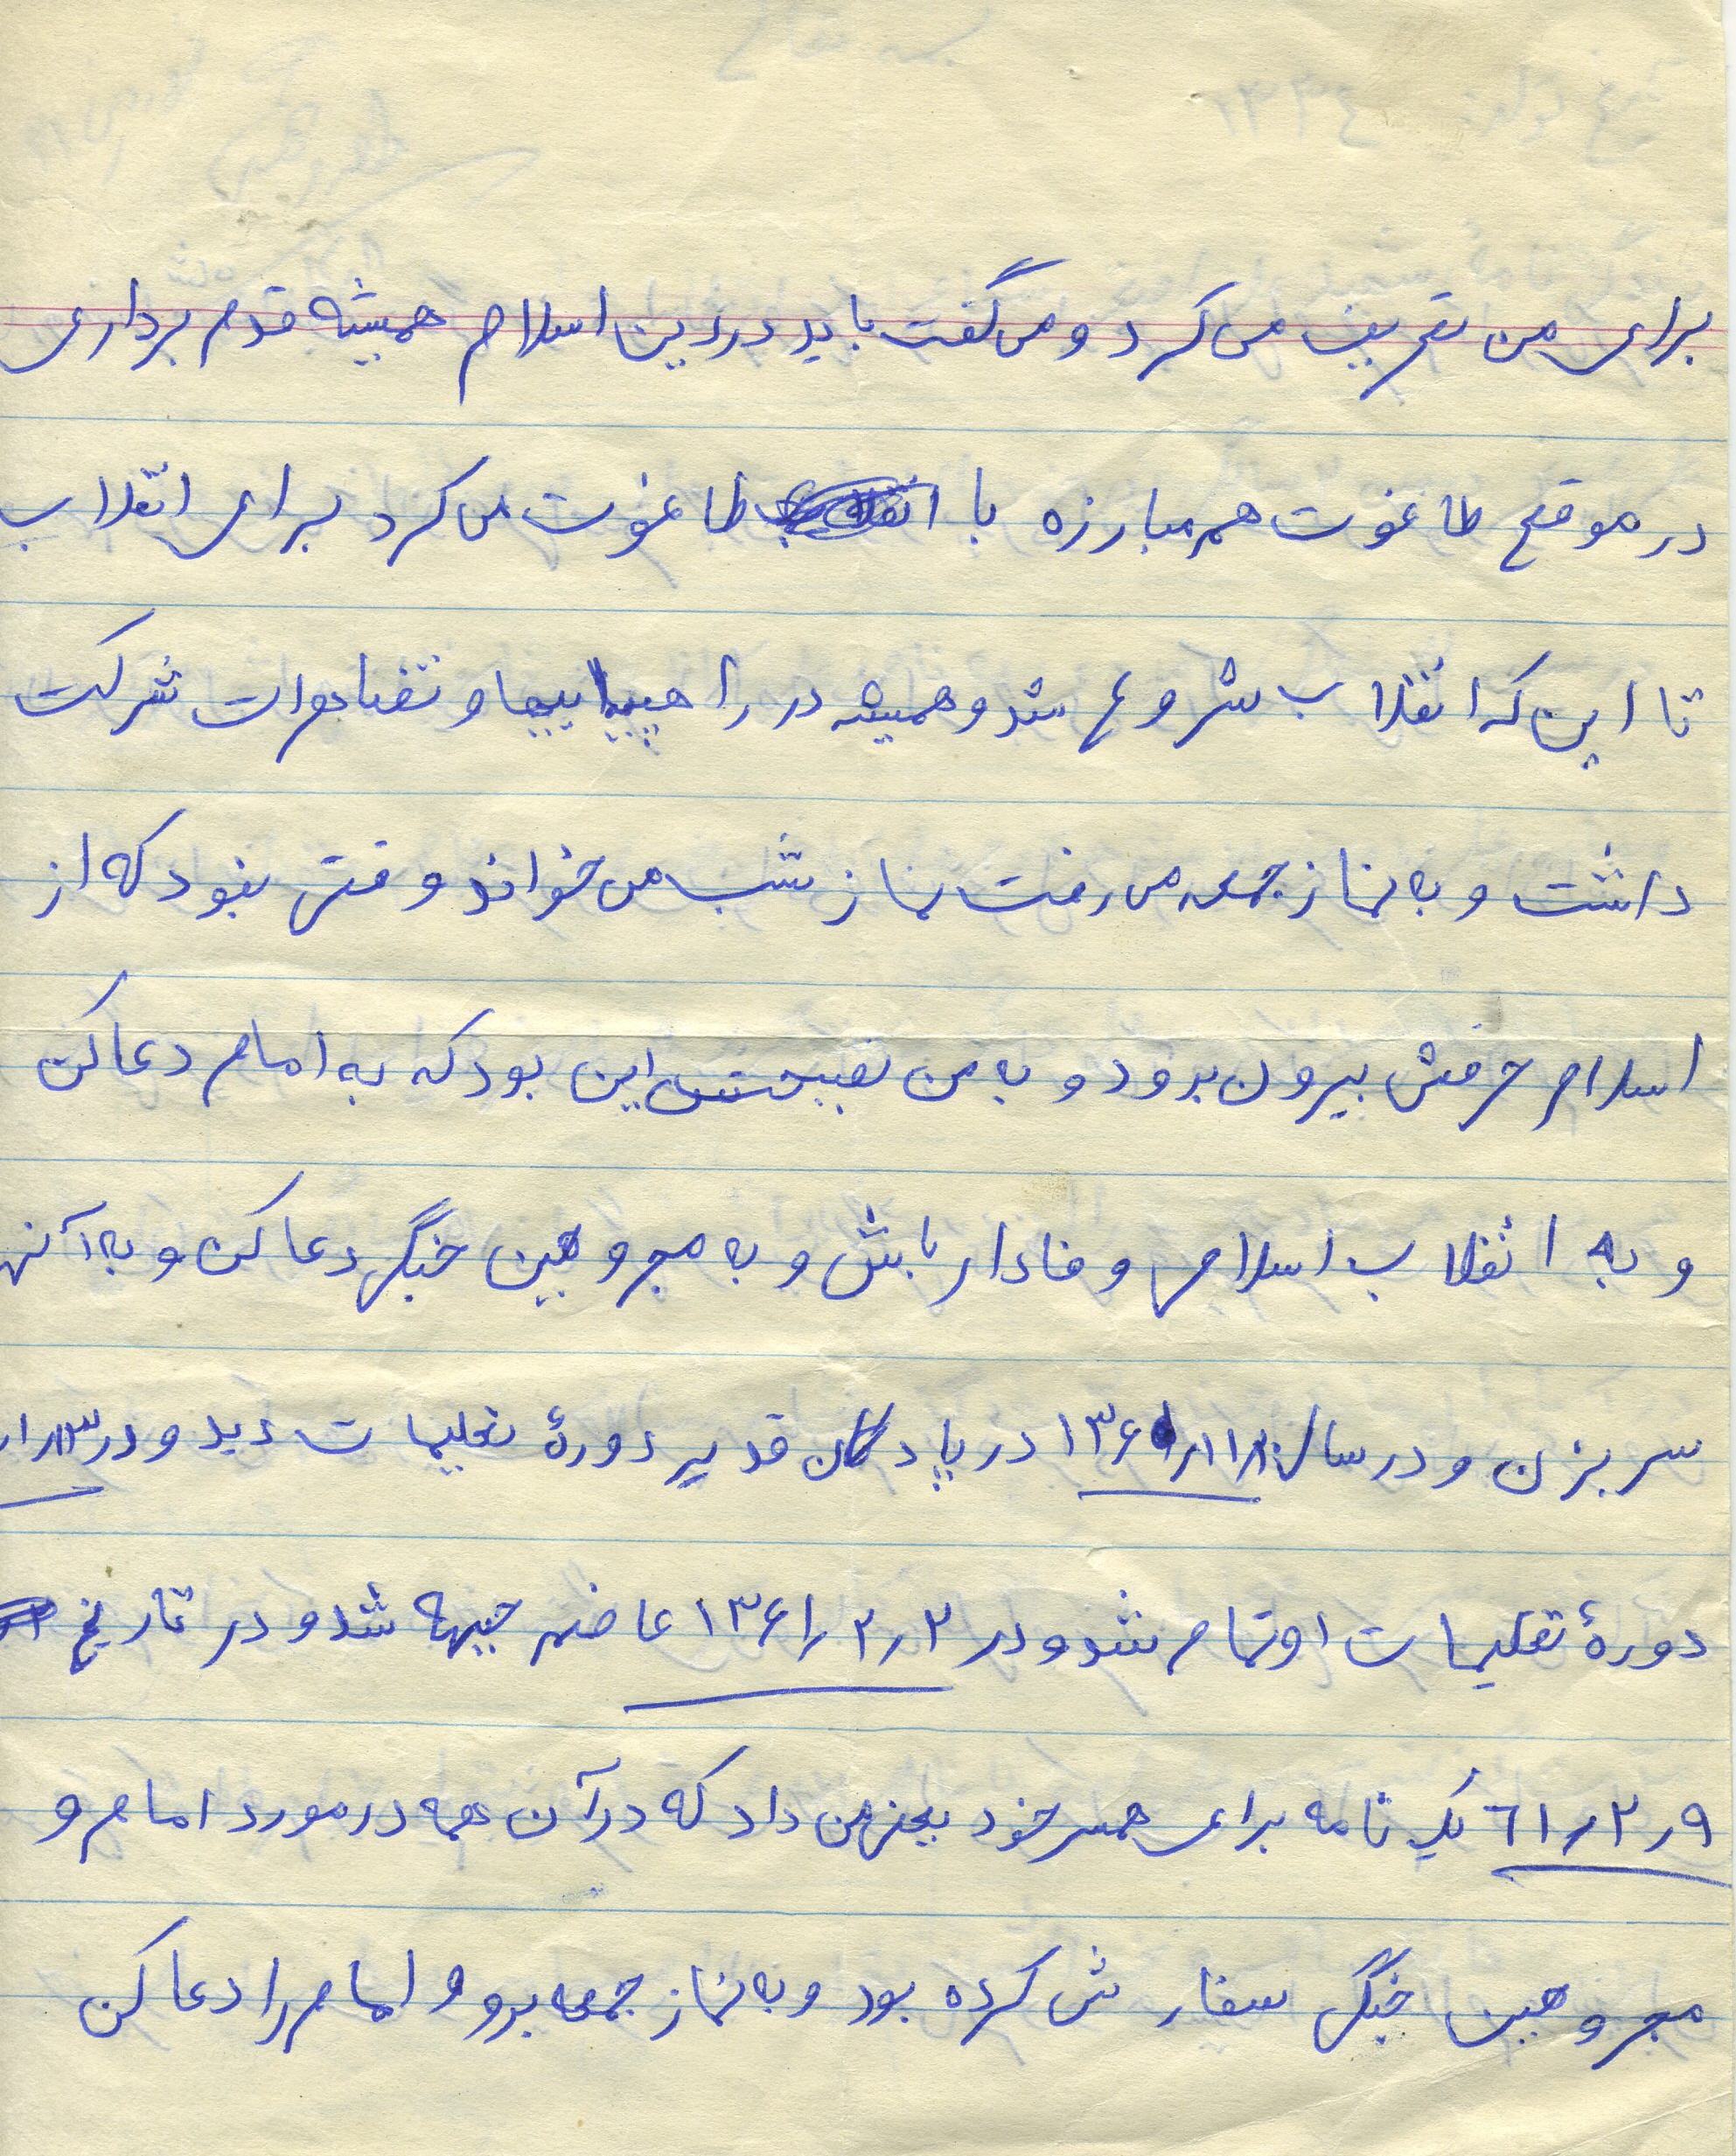 برای من تعریف می کرد و می گفت باید در دین اسلام همیشه قدم برداری
در موقع طاغوت هم مبارزه با طاغوت می کرد برای انقلاب
تا این که انقلاب شروع شد و همیشه در راهپیماییها و تضاهرات شرکت
داشت و به نماز جمعه می رفت نماز شب می خواند وقتی نبود که از
اسلام حرفش بیرون برود و به من نصیحتش این بود که به امام دعا کن
و به انقلاب اسلامی وفادار باش و به مجروهین جنگی دعا کن و به آنها
سر بزن و در سال در پادگان قدیر دورهٔ تعلیمات دید و در
دورهٔ تعلیمات او تمام شد و در ۱۳۶۱٫۲٫۲ عاضم جبهه شد و در تاریخ
۶۱٫۲٫۹ یک نامه برای همسر خود یعنی من داد که در آن همه در مورد امام و
مجروهین جنگ سفارش کرده بود و به نماز جمعه برو و امام را دعا کن